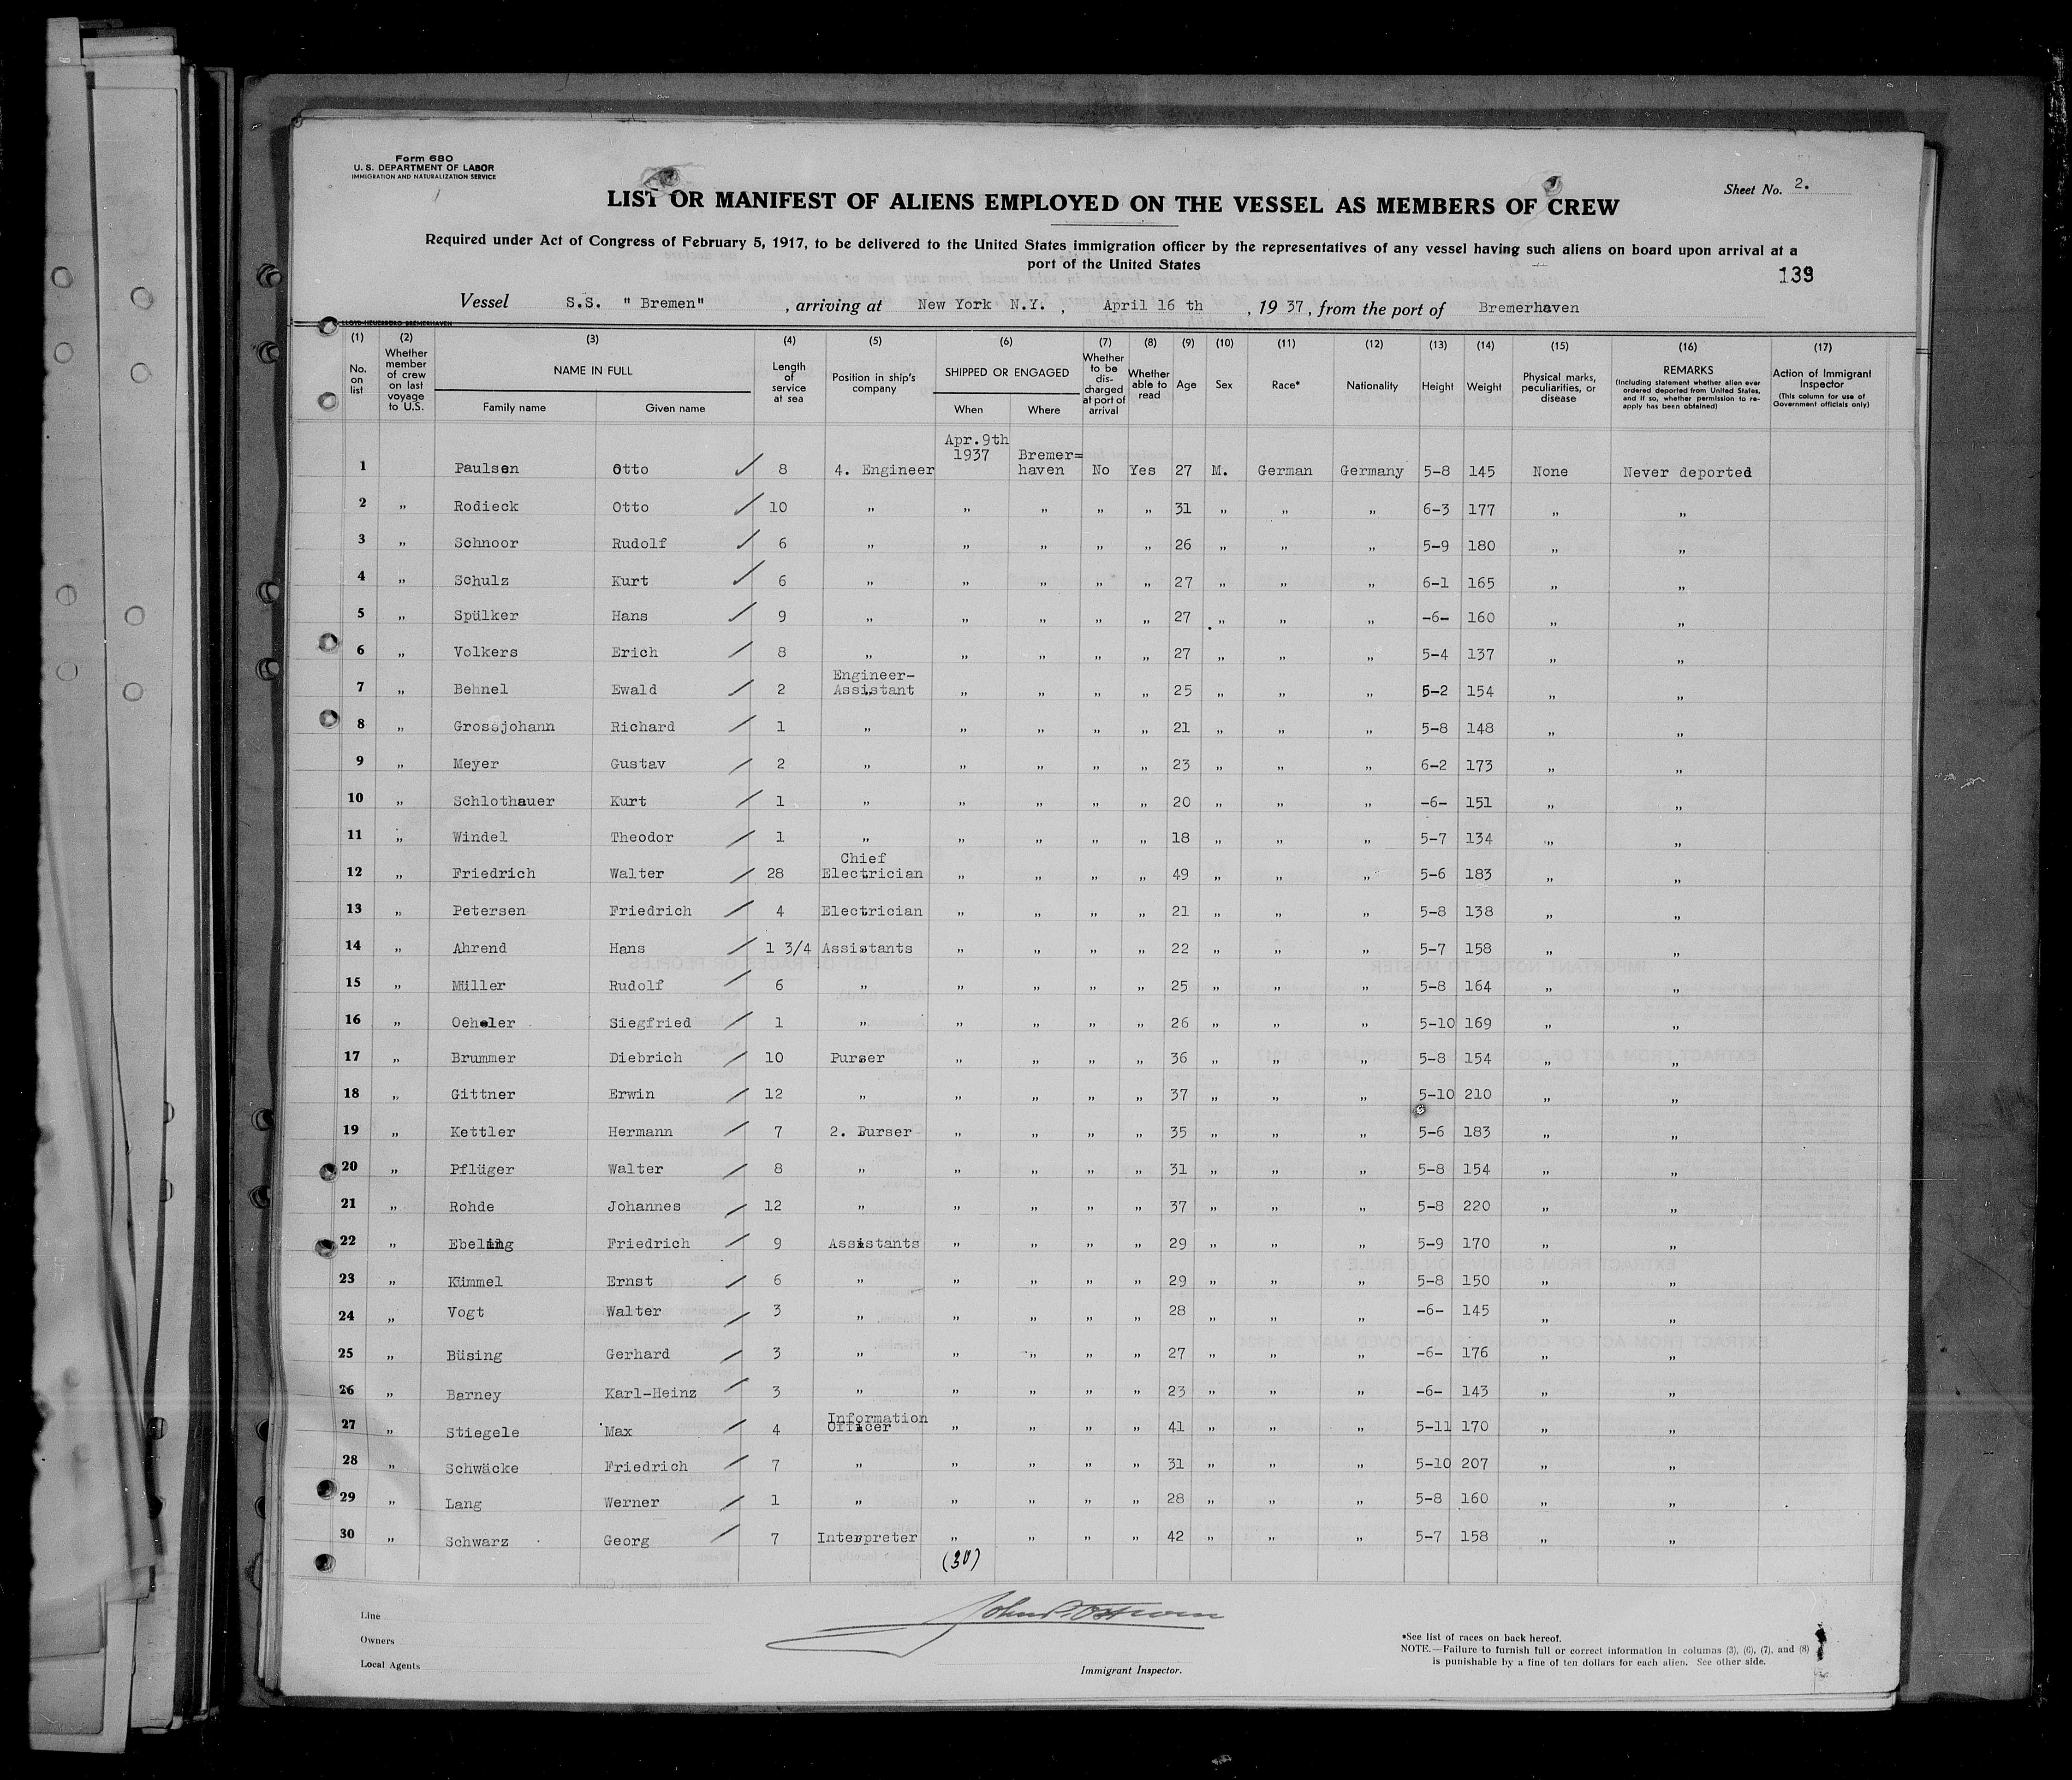 Form 680
U. S. DEPARTMENT OF LABOR
IMMIGRATION AND NATURALIZATION SERVICE
Sheet No. 2.
LIST OR MANIFEST OF ALIENS EMPLOYED ON THE VESSEL AS MEMBERS OF CREW
Required under Act of Congress of February 5, 1917, to be delivered to the United States immigration officer by the representatives of any vessel having such aliens on board upon arrival at a
port of the United States
139
Vessel S.S. " Bremen" , arriving at New York N.Y. , April 16 th , 19 37 , from the port of Bremerhaven
(1) (2) (3) (4) (5) (6) (7) (8) (9) (10) (11) (12) (13) (14) (15) (16) (17)
No. on list
Whether member of crew on last voyage to U.S.
NAME IN FULL
Family name Given name
Length of service at sea
Position in ship's company
SHIPPED OR ENGAGED
When Where
Whether to be dis-charged at port of arrival
Whether able to read
Age Sex Race* Nationality Height Weight
Physical marks, peculiarities, or disease
REMARKS
(Including statement whether alien ever ordered deported from United States, and if so, whether permission to re-apply has been obtained)
Action of Immigrant Inspector
(This column for use of Government officials only)
Apr.9th
1937 Bremer=
1 Paulsen Otto 8 4. Engineer haven No Yes 27 M. German Germany 5-8 145 None Never deported
2 „ Rodieck Otto 10 „ „ „ „ „ 31 „ „ „ 6-3 177 „ „
3 „ Schnoor Rudolf 6 „ „ „ „ „ 26 „ „ „ 5-9 180 „ „
4 „ Schulz Kurt 6 „ „ „ „ „ 27 „ „ „ 6-1 165 „ „
5 „ Spülker Hans 9 „ „ „ „ „ 27 „ „ „ -6- 160 „ „
6 „ Volkers Erich 8 „ „ „ „ „ 27 „ „ „ 5-4 137 „ „
Engineer-
7 „ Behnel Ewald 2 Assistant „ „ „ „ 25 „ „ „ 5-2 154 „ „
8 „ Grossjohann Richard 1 „ „ „ „ „ 21 „ „ „ 5-8 148 „ „
9 „ Meyer Gustav 2 „ „ „ „ „ 23 „ „ „ 6-2 173 „ „
10 „ Schlothauer Kurt 1 „ „ „ „ „ 20 „ „ „ -6- 151 „ „
11 „ Windel Theodor 1 „ „ „ „ „ 18 „ „ „ 5-7 134 „ „
Chief
12 „ Friedrich Walter 28 Electrician „ „ „ „ 49 „ „ „ 5-6 183 „ „
13 „ Petersen Friedrich 4 Electrician „ „ „ „ 21 „ „ „ 5-8 138 „ „
14 „ Ahrend Hans 1 3/4 Assistants „ „ „ „ 22 „ „ „ 5-7 158 „ „
15 „ Müller Rudolf 6 „ „ „ „ „ 25 „ „ „ 5-8 164 „ „
16 „ Oeheler Siegfried 1 „ „ „ „ „ 26 „ „ „ 5-10 169 „ „
17 „ Brummer Diebrich 10 Purser „ „ „ „ 36 „ „ „ 5-8 154 „ „
18 „ Gittner Erwin 12 „ „ „ „ „ 37 „ „ „ 5-10 210 „ „
19 „ Kettler Hermann 7 2. Purser „ „ „ „ 35 „ „ „ 5-6 183 „ „
20 „ Pflüger Walter 8 „ „ „ „ „ 31 „ „ „ 5-8 154 „ „
21 „ Rohde Johannes 12 „ „ „ „ „ 37 „ „ „ 5-8 220 „ „
22 „ Ebeling Friedrich 9 Assistants „ „ „ „ 29 „ „ „ 5-9 170 „ „
23 „ Kümmel Ernst 6 „ „ „ „ „ 29 „ „ „ 5-8 150 „ „
24 „ Vogt Walter 3 „ „ „ „ „ 28 „ „ „ -6- 145 „ „
25 „ Büsing Gerhard 3 „ „ „ „ „ 27 „ „ „ -6- 176 „ „
26 „ Barney Karl-Heinz 3 „ „ „ „ „ 23 „ „ „ -6- 143 „ „
Information
27 „ Stiegele Max 4 Officer „ „ „ „ 41 „ „ „ 5-11 170 „ „
28 „ Schwäcke Friedrich 7 „ „ „ „ „ 31 „ „ „ 5-10 207 „ „
29 „ Lang Werner 1 „ „ „ „ „ 28 „ „ „ 5-8 160 „ „
30 „ Schwarz Georg 7 Interpreter „ „ „ „ 42 „ „ „ 5-7 158 „ „
(30)
Line
Owners
Local Agents
Immigrant Inspector.
*See list of races on back hereof.
NOTE.—Failure to furnish full or correct information in columns (3), (6), (7), and (8)
is punishable by a fine of ten dollars for each alien. See other side.